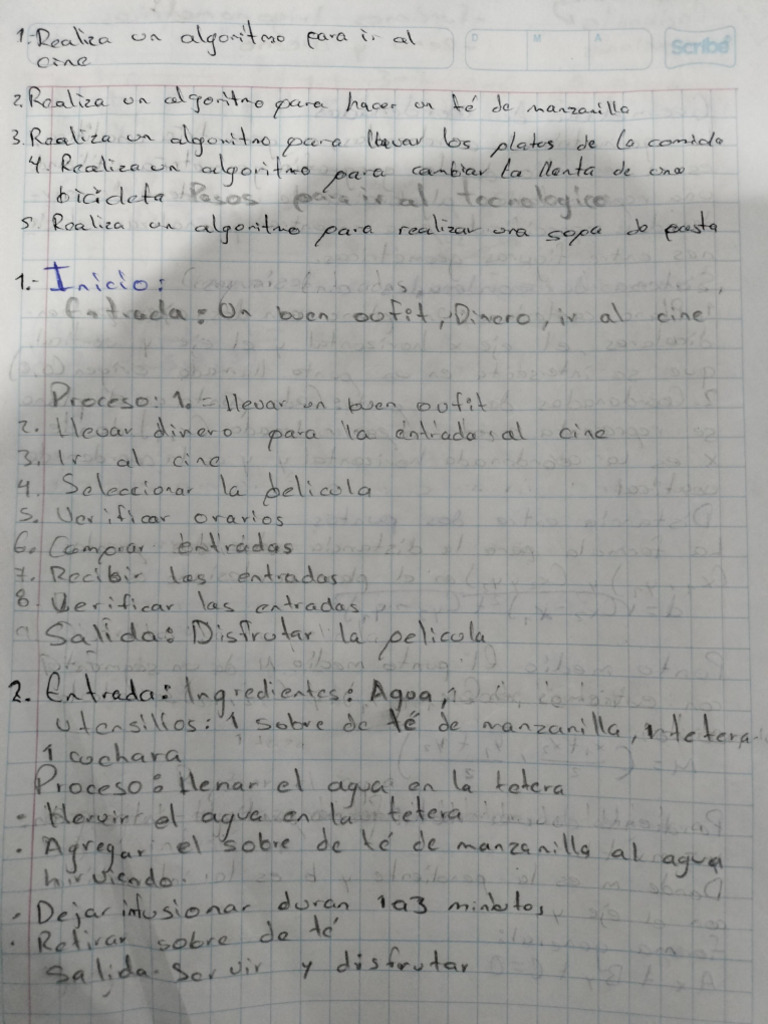 1. Realiza un algoritmo para ir al
cine
D M A
Scribe
2. Realiza un algoritmo para hacer un té de manzanilla
3. Realiza un algoritmo para llevar los platos de la comida
4. Realiza un algoritmo para cambiar la llanta de una
bicicleta Pasos para ir al tecnologico
5 Realiza un algoritmo para realizar una sopa de pasta
1.- Inicio:
Entrada: Un buen oufit, Dinero, ir al cine
Proceso: 1.- llevar un buen oufit
2. llevar dinero para la entrada al cine
3. Ir al cine
4. Seleccionar la pelicula
5. Verificar orarios
6. Comprar entradas
7. Recibir las entradas
8. Verificar las entradas
9 Salida: Disfrutar la pelicula
2. Entrada: Ingredientes: Agua,
utensilios: 1 sobre de té de manzanilla, 1 tetera
1 cuchara
Proceso: llenar el agua en la tetera
- Hervir el agua en la tetera
. Agregar el sobre de té de manzanilla al agua
hirviendo.
. Dejar infusionar duran 1a3 minutos
. Retirar sobre de té
Salida. Servir y disfrutar